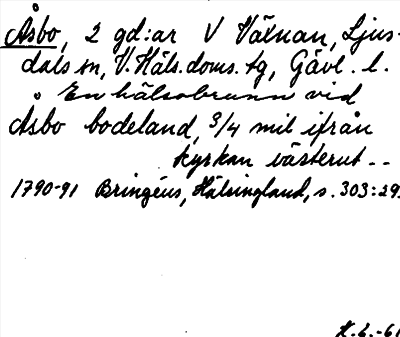 Åsbo, 2 gd:ar V Växnan, Ljus-
dals sn, V. Häls. doms. tg, Gävl. l.
" En hälsobrunn vid
Åsbo bodeland, 3/4 mil ifrån
kyrkan västerut --
1790-91 Bringéus, Hälsingland, s. 303:29
H. L. -61